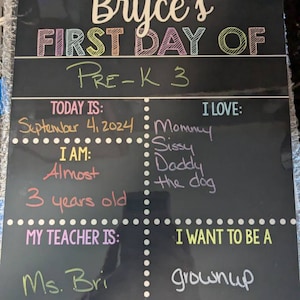 Bryce's
FIRST DAY OF
Pre-K 3
TODAY IS:
September 4, 2024
I AM:
Almost
3 years old
MY TEACHER IS:
Ms. Bri
I LOVE:
Mommy
Sissy
Daddy
the dog
I WANT TO BE A
grownup